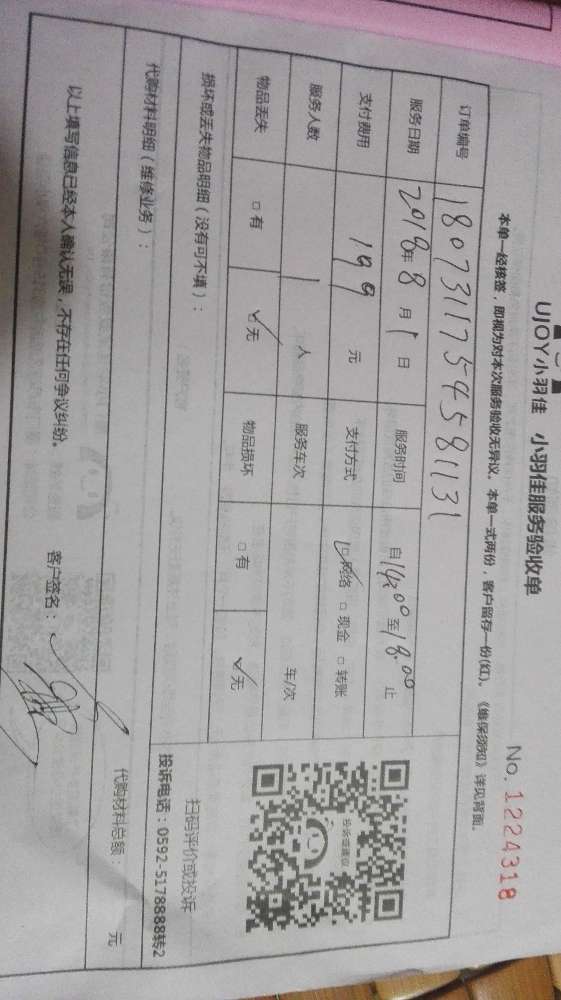 UJOY小羽佳 小羽佳服务验收单
No. 1224318
本单一经核签，即视为对本次服务验收无异议。本单一式两份，客户留存一份(红)。《维保须知》详见背面。
订单编号 18073117545581131
服务日期 2018年 8 月 1 日 服务时间 自 14:00 至 18:00 止
支付费用 199 元 支付方式 ☑网络 □现金 □转账
服务人数 1 人 服务车次 车/次
物品丢失 □有 ☑无 物品损坏 □有 ☑无
投诉或建议
扫码评价或投诉
投诉电话：0592-5178888转2
损坏或丢失物品明细（没有可不填）：
代购材料明细（维修业务）：
代购材料总额： 元
以上填写信息已经本人确认无误，不存在任何争议纠纷。 客户签名：